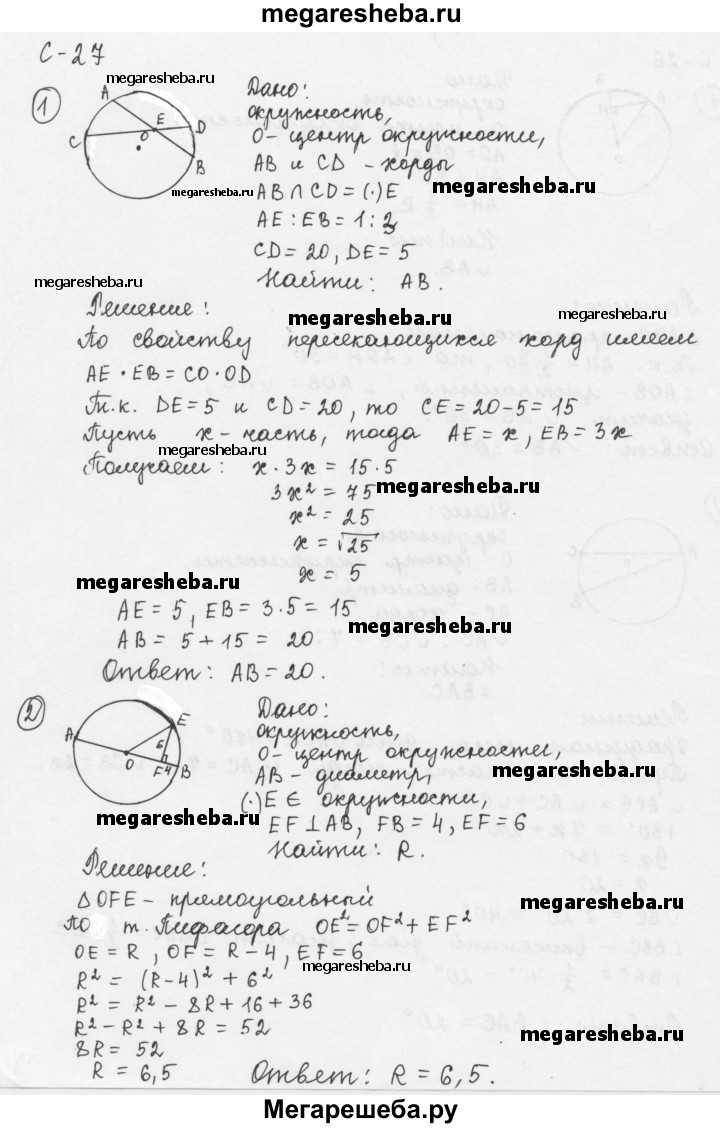 megaresheba.ru
С-27
megaresheba.ru
1
A
C
E
O
D
B
Дано:
окружность,
О- центр окружности,
AB и CD - хорды
megaresheba.ru
megaresheba.ru
AB ∩ CD = (·)E
AE : EB = 1 : 3
CD = 20, DE = 5
Найти: AB.
megaresheba.ru
Решение:
megaresheba.ru
По свойству пересекающихся хорд имеем
AE · EB = CO · OD
Т.к. DE = 5 и CD = 20, то CE = 20-5 = 15
Пусть x - часть, тогда AE = x, EB = 3x
megaresheba.ru
Получаем: x · 3x = 15 · 5
3x² = 75
megaresheba.ru
x² = 25
x = √25
x = 5
megaresheba.ru
AE = 5, EB = 3·5 = 15
AB = 5 + 15 = 20
megaresheba.ru
Ответ: AB = 20.
2
A
E
6
O
F
4
B
Дано:
окружность,
О- центр окружности,
AB - диаметр,
megaresheba.ru
(·)E ∈ окружности,
EF ⊥ AB, FB = 4, EF = 6
megaresheba.ru
Найти: R.
Решение:
△OFE - прямоугольный
megaresheba.ru
По т. Пифагора OE² = OF² + EF²
OE = R, OF = R - 4, EF = 6
megaresheba.ru
R² = (R-4)² + 6²
R² = R² - 8R + 16 + 36
R² - R² + 8R = 52
megaresheba.ru
8R = 52
R = 6,5
megaresheba.ru
Ответ: R = 6,5.
Мегарешеба.ру